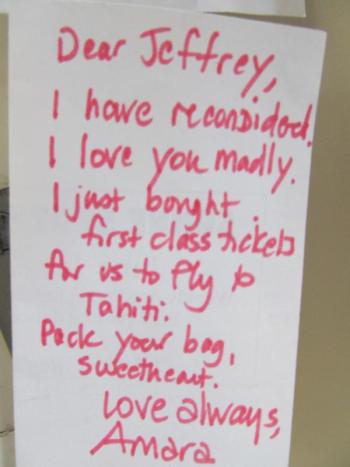 Dear Jeffrey,
I have reconsidered.
I love you madly.
I just bought
first class tickets
for us to fly to
Tahiti.
Pack your bag,
sweetheart.
Love always,
Amara